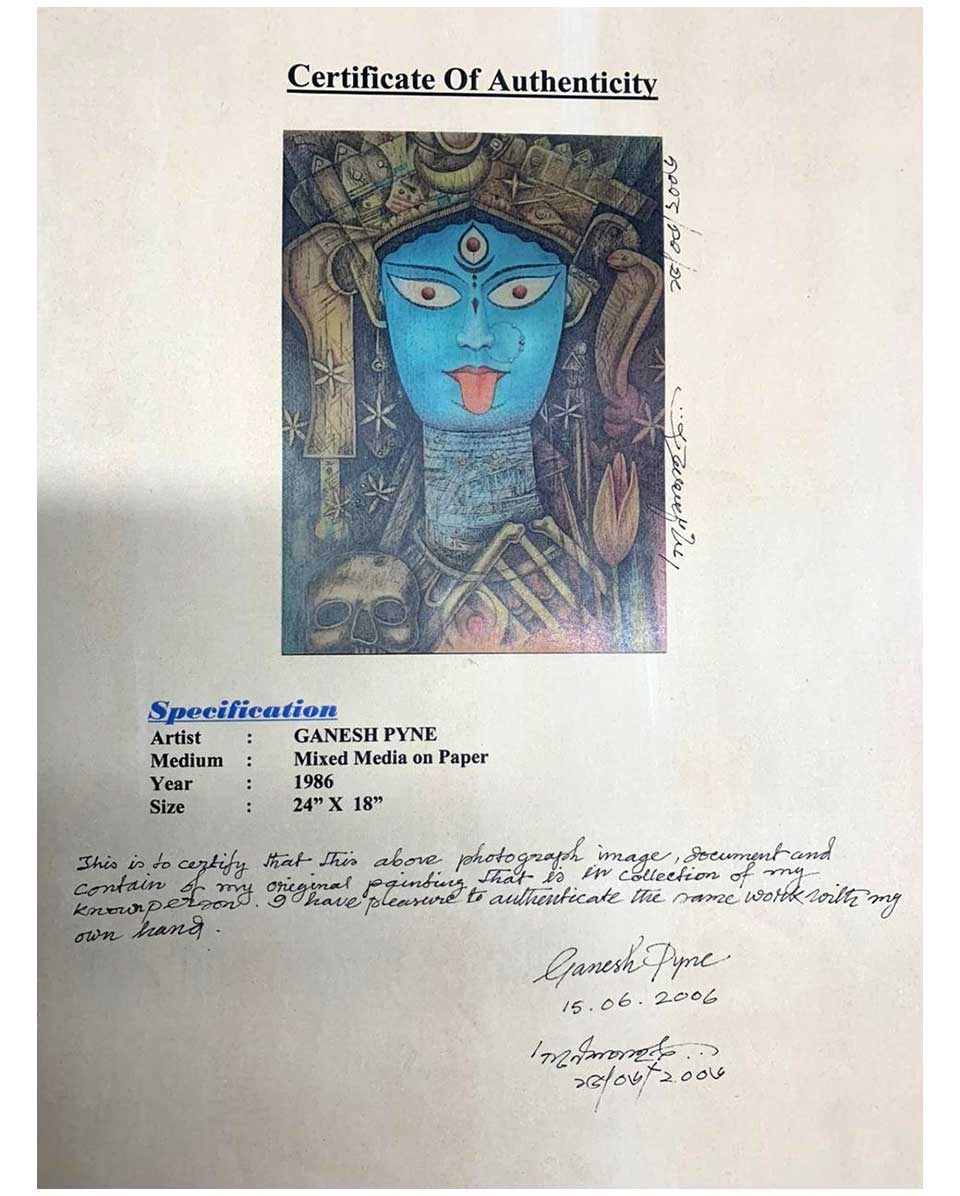 Certificate Of Authenticity
Specification
Artist : GANESH PYNE
Medium : Mixed Media on Paper
Year : 1986
Size : 24” X 18”
This is to certify that this above photograph image, document and
contain of my original painting that is in collection of my
known person. I have pleasure to authenticate the same work with my
own hand.
Ganesh Pyne
15.06.2006